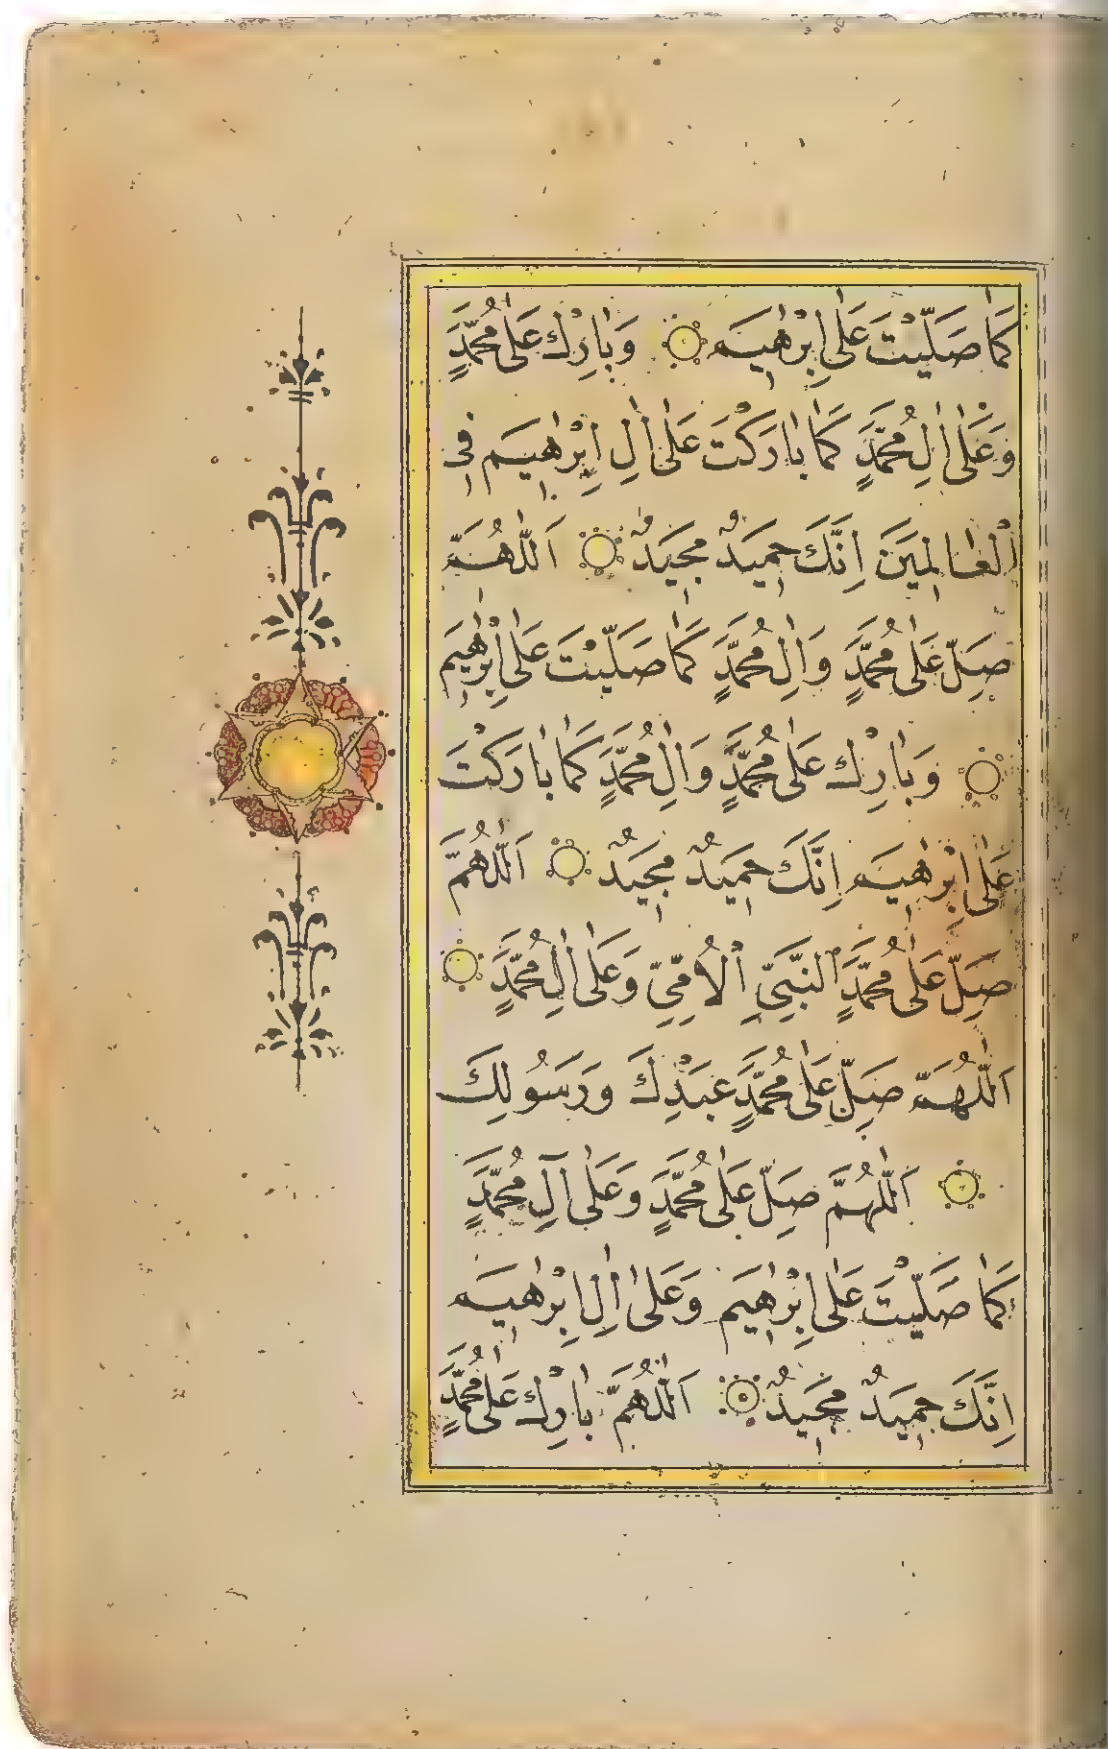 كَمَا صَلَّيْتَ عَلٰى اِبْرٰهِيمَ وَبَارِكْ عَلٰى مُحَمَّدٍ
وَعَلٰى اٰلِ مُحَمَّدٍ كَمَا بَارَكْتَ عَلٰى اٰلِ اِبْرٰهِيمَ فِى
الْعَالَمِينَ اِنَّكَ حَمِيدٌ مَجِيدٌ اَللّٰهُمَّ
صَلِّ عَلٰى مُحَمَّدٍ وَاٰلِ مُحَمَّدٍ كَمَا صَلَّيْتَ عَلٰى اِبْرٰهِيمَ
وَبَارِكْ عَلٰى مُحَمَّدٍ وَاٰلِ مُحَمَّدٍ كَمَا بَارَكْتَ
عَلٰى اِبْرٰهِيمَ اِنَّكَ حَمِيدٌ مَجِيدٌ اَللّٰهُمَّ
صَلِّ عَلٰى مُحَمَّدٍ النَّبِىِّ الْاُمِّىِّ وَعَلٰى اٰلِ مُحَمَّدٍ
اَللّٰهُمَّ صَلِّ عَلٰى مُحَمَّدٍ عَبْدِكَ وَرَسُولِكَ
اَللّٰهُمَّ صَلِّ عَلٰى مُحَمَّدٍ وَعَلٰى آلِ مُحَمَّدٍ
كَمَا صَلَّيْتَ عَلٰى اِبْرٰهِيمَ وَعَلٰى اٰلِ اِبْرٰهِيمَ
اِنَّكَ حَمِيدٌ مَجِيدٌ اَللّٰهُمَّ بَارِكْ عَلٰى مُحَمَّدٍ